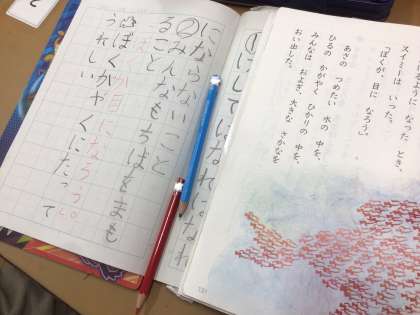 ように なった とき、
スイミーは いった。
「ぼくが、目に なろう。」
あさの つめたい 水の 中を、
ひるの かがやく ひかりの 中を、
みんなは およぎ、大きな さかなを
おい出した。
はなればなれ
にならないこと
②みんなもちばをまも
ること
ぼくが目になろう。
うれしい やくにたって